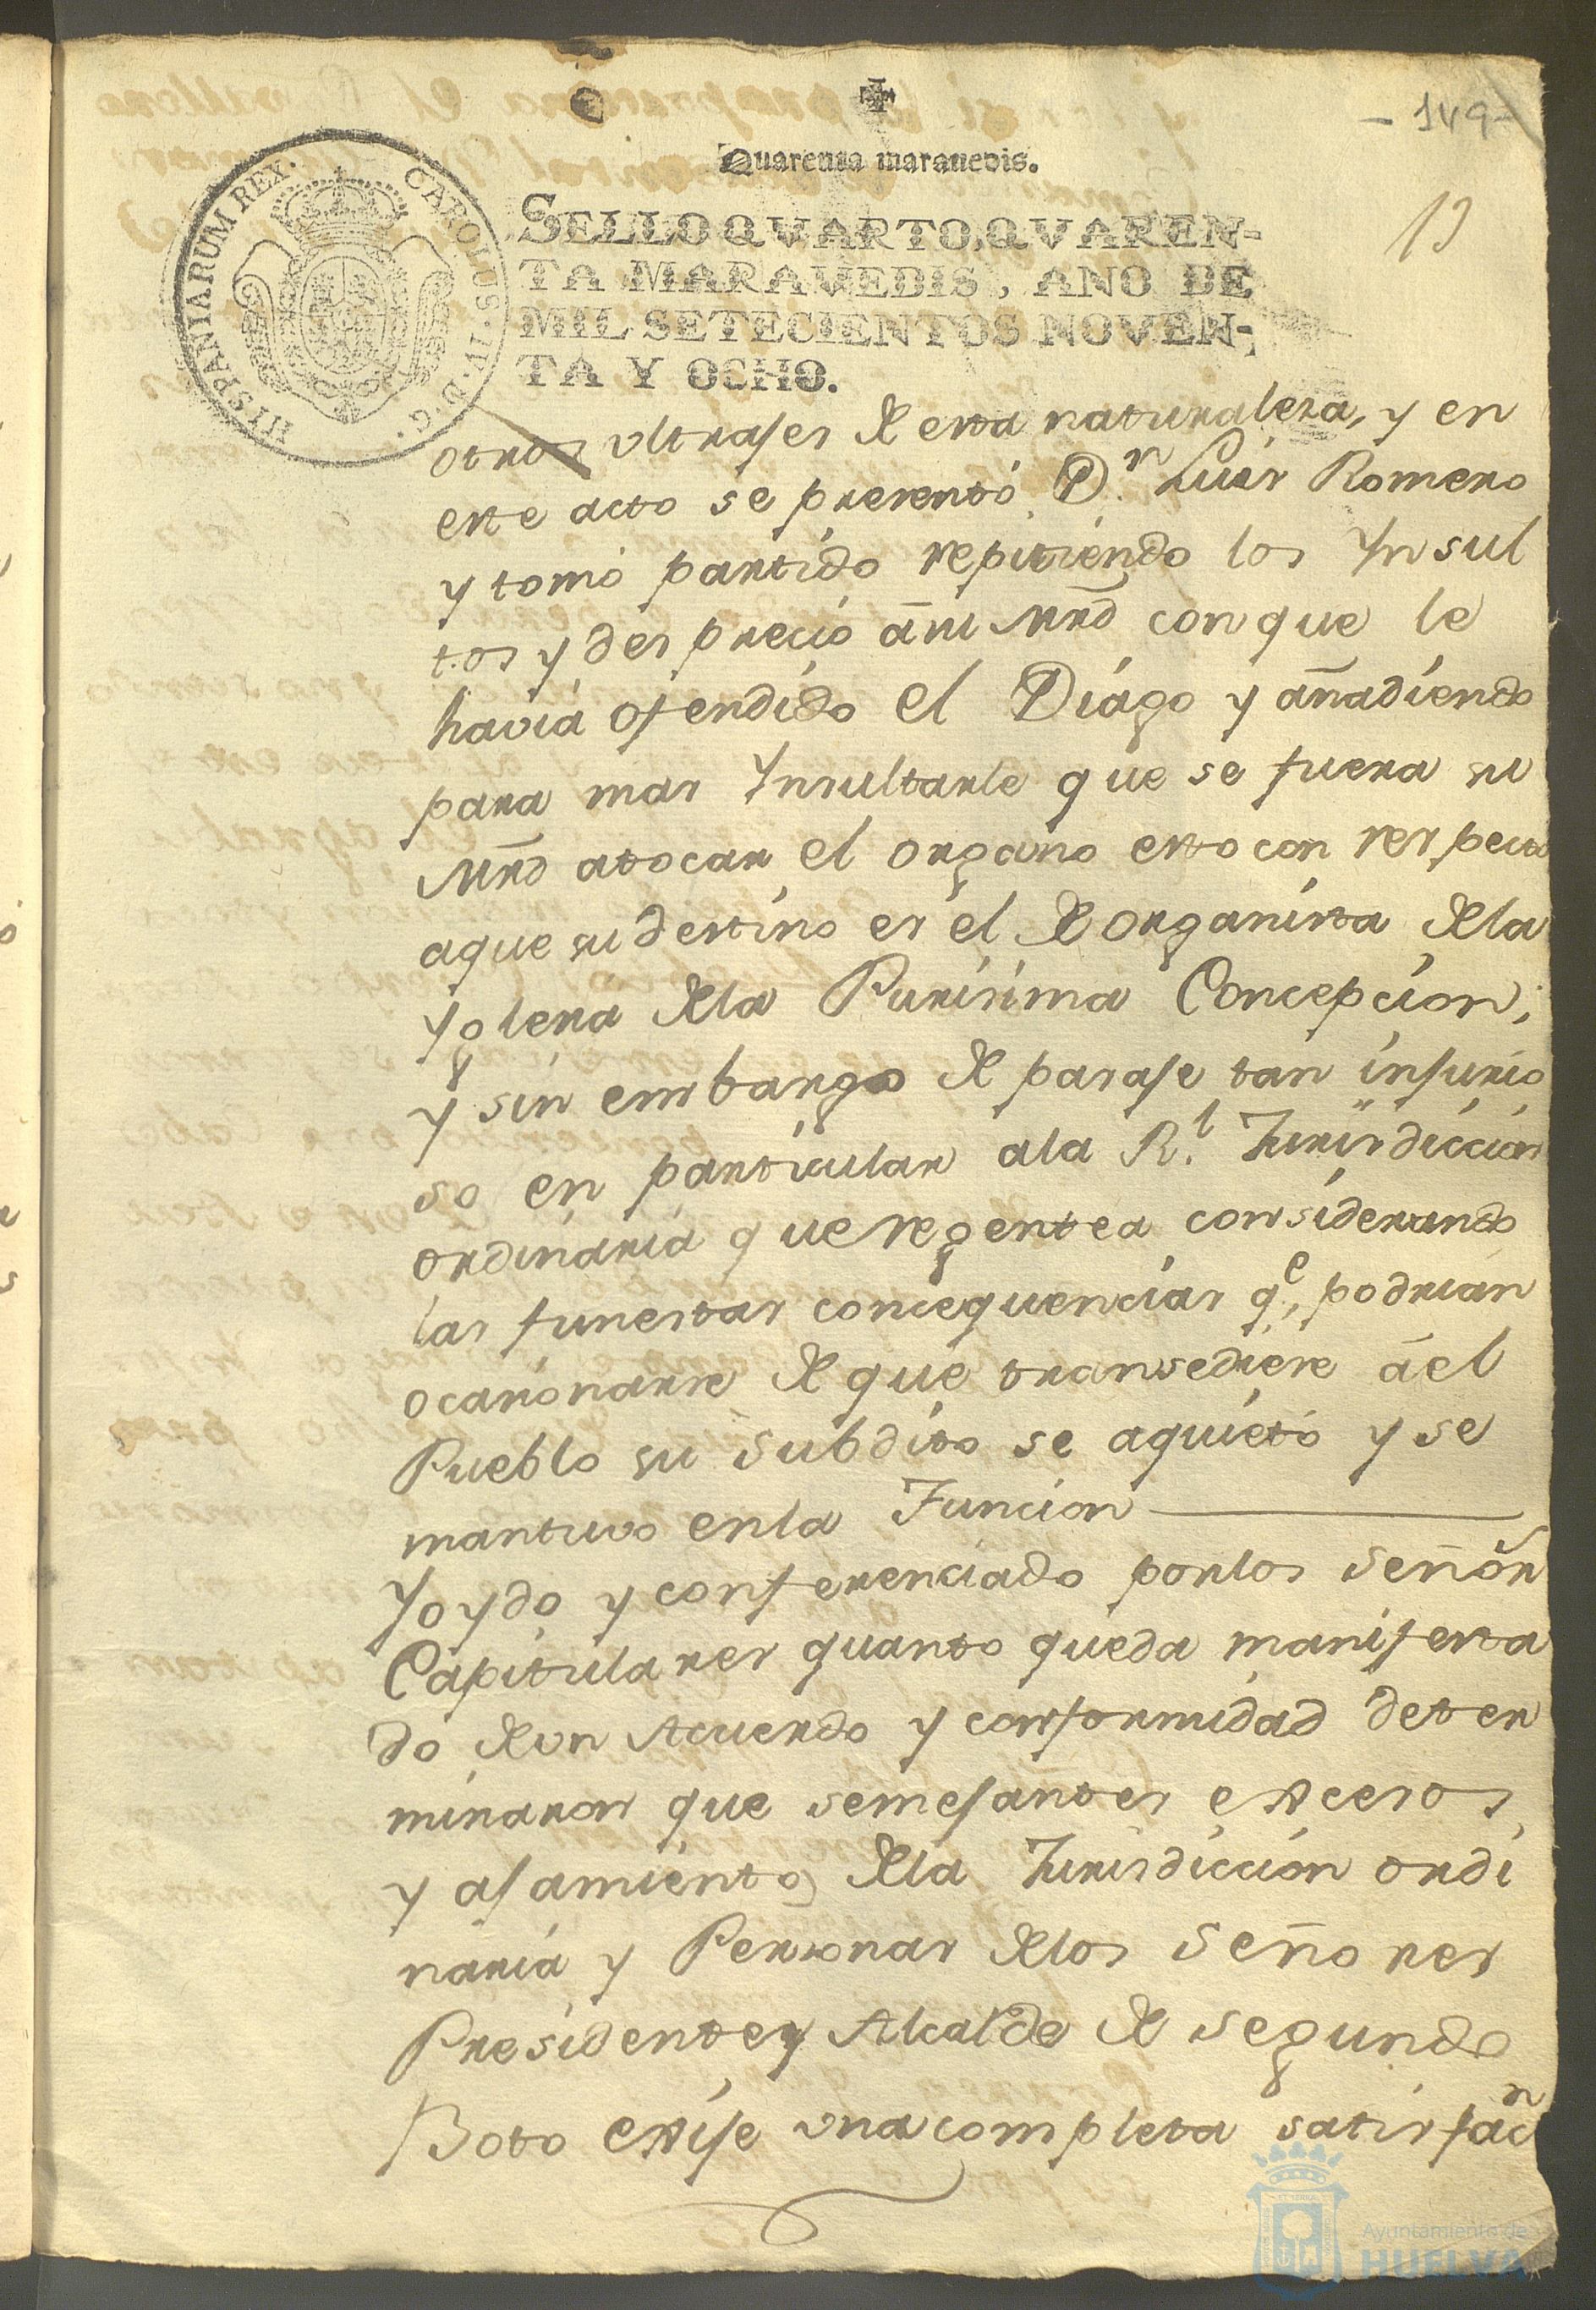 - 149 -
Quarenta maravedis.
13
SELLO QVARTO, QVAREN-
TA MARAVEDIS, AÑO DE
MIL SETECIENTOS NOVEN-
TA Y OCHO.
HISPANIARUM REX.
CAROLUS. IV. D. G.
otros ultrajes de esta naturaleza, y en
este acto se presentó Dn. Luis Romero
y tomó partido repitiendo los Ynsul
tos y desprecio a su Mrd con que le
havia ofendido el Diágo y añadiendo
para mas Ynsultarle que se fuera su
Mrd atocar el organo esto con respecto
aque su destino es el de organista dela
Yglesia dela Purisima Concepcion;
y sin embargo de paraje tan injurio
so en particular ala Rl. Jurisdiccion
ordinaria que regentea considerando
las funestas concequencias qe. podrian
ocasionarse de que transediese a el
Pueblo su subdito se aquietó y se
mantuvo enla Funcion
Yoydo y conferenciado porlos Señor
Capitulares quanto queda manifesta
do deun Acuerdo y conformidad deter
minaron que semejantes excesos
y ajamiento dela Jurisdiccion ordi
naria y Personas delos Señores
Presidente y Alcalde de segundo
Boto exije una completa satisfacn
Ayuntamiento de
HUELVA